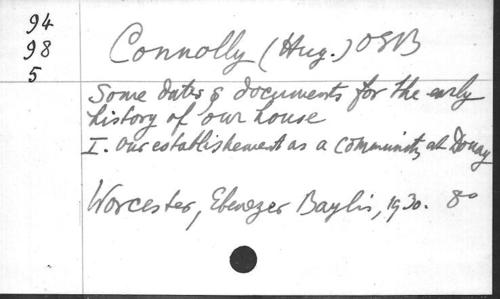 94
98
5
Connolly (Hug.) OSB
Some dates & documents for the early
history of our house
I. Our establishement as a community at Douay
Worcester, Ebenezer Baylis, 1930. 8o